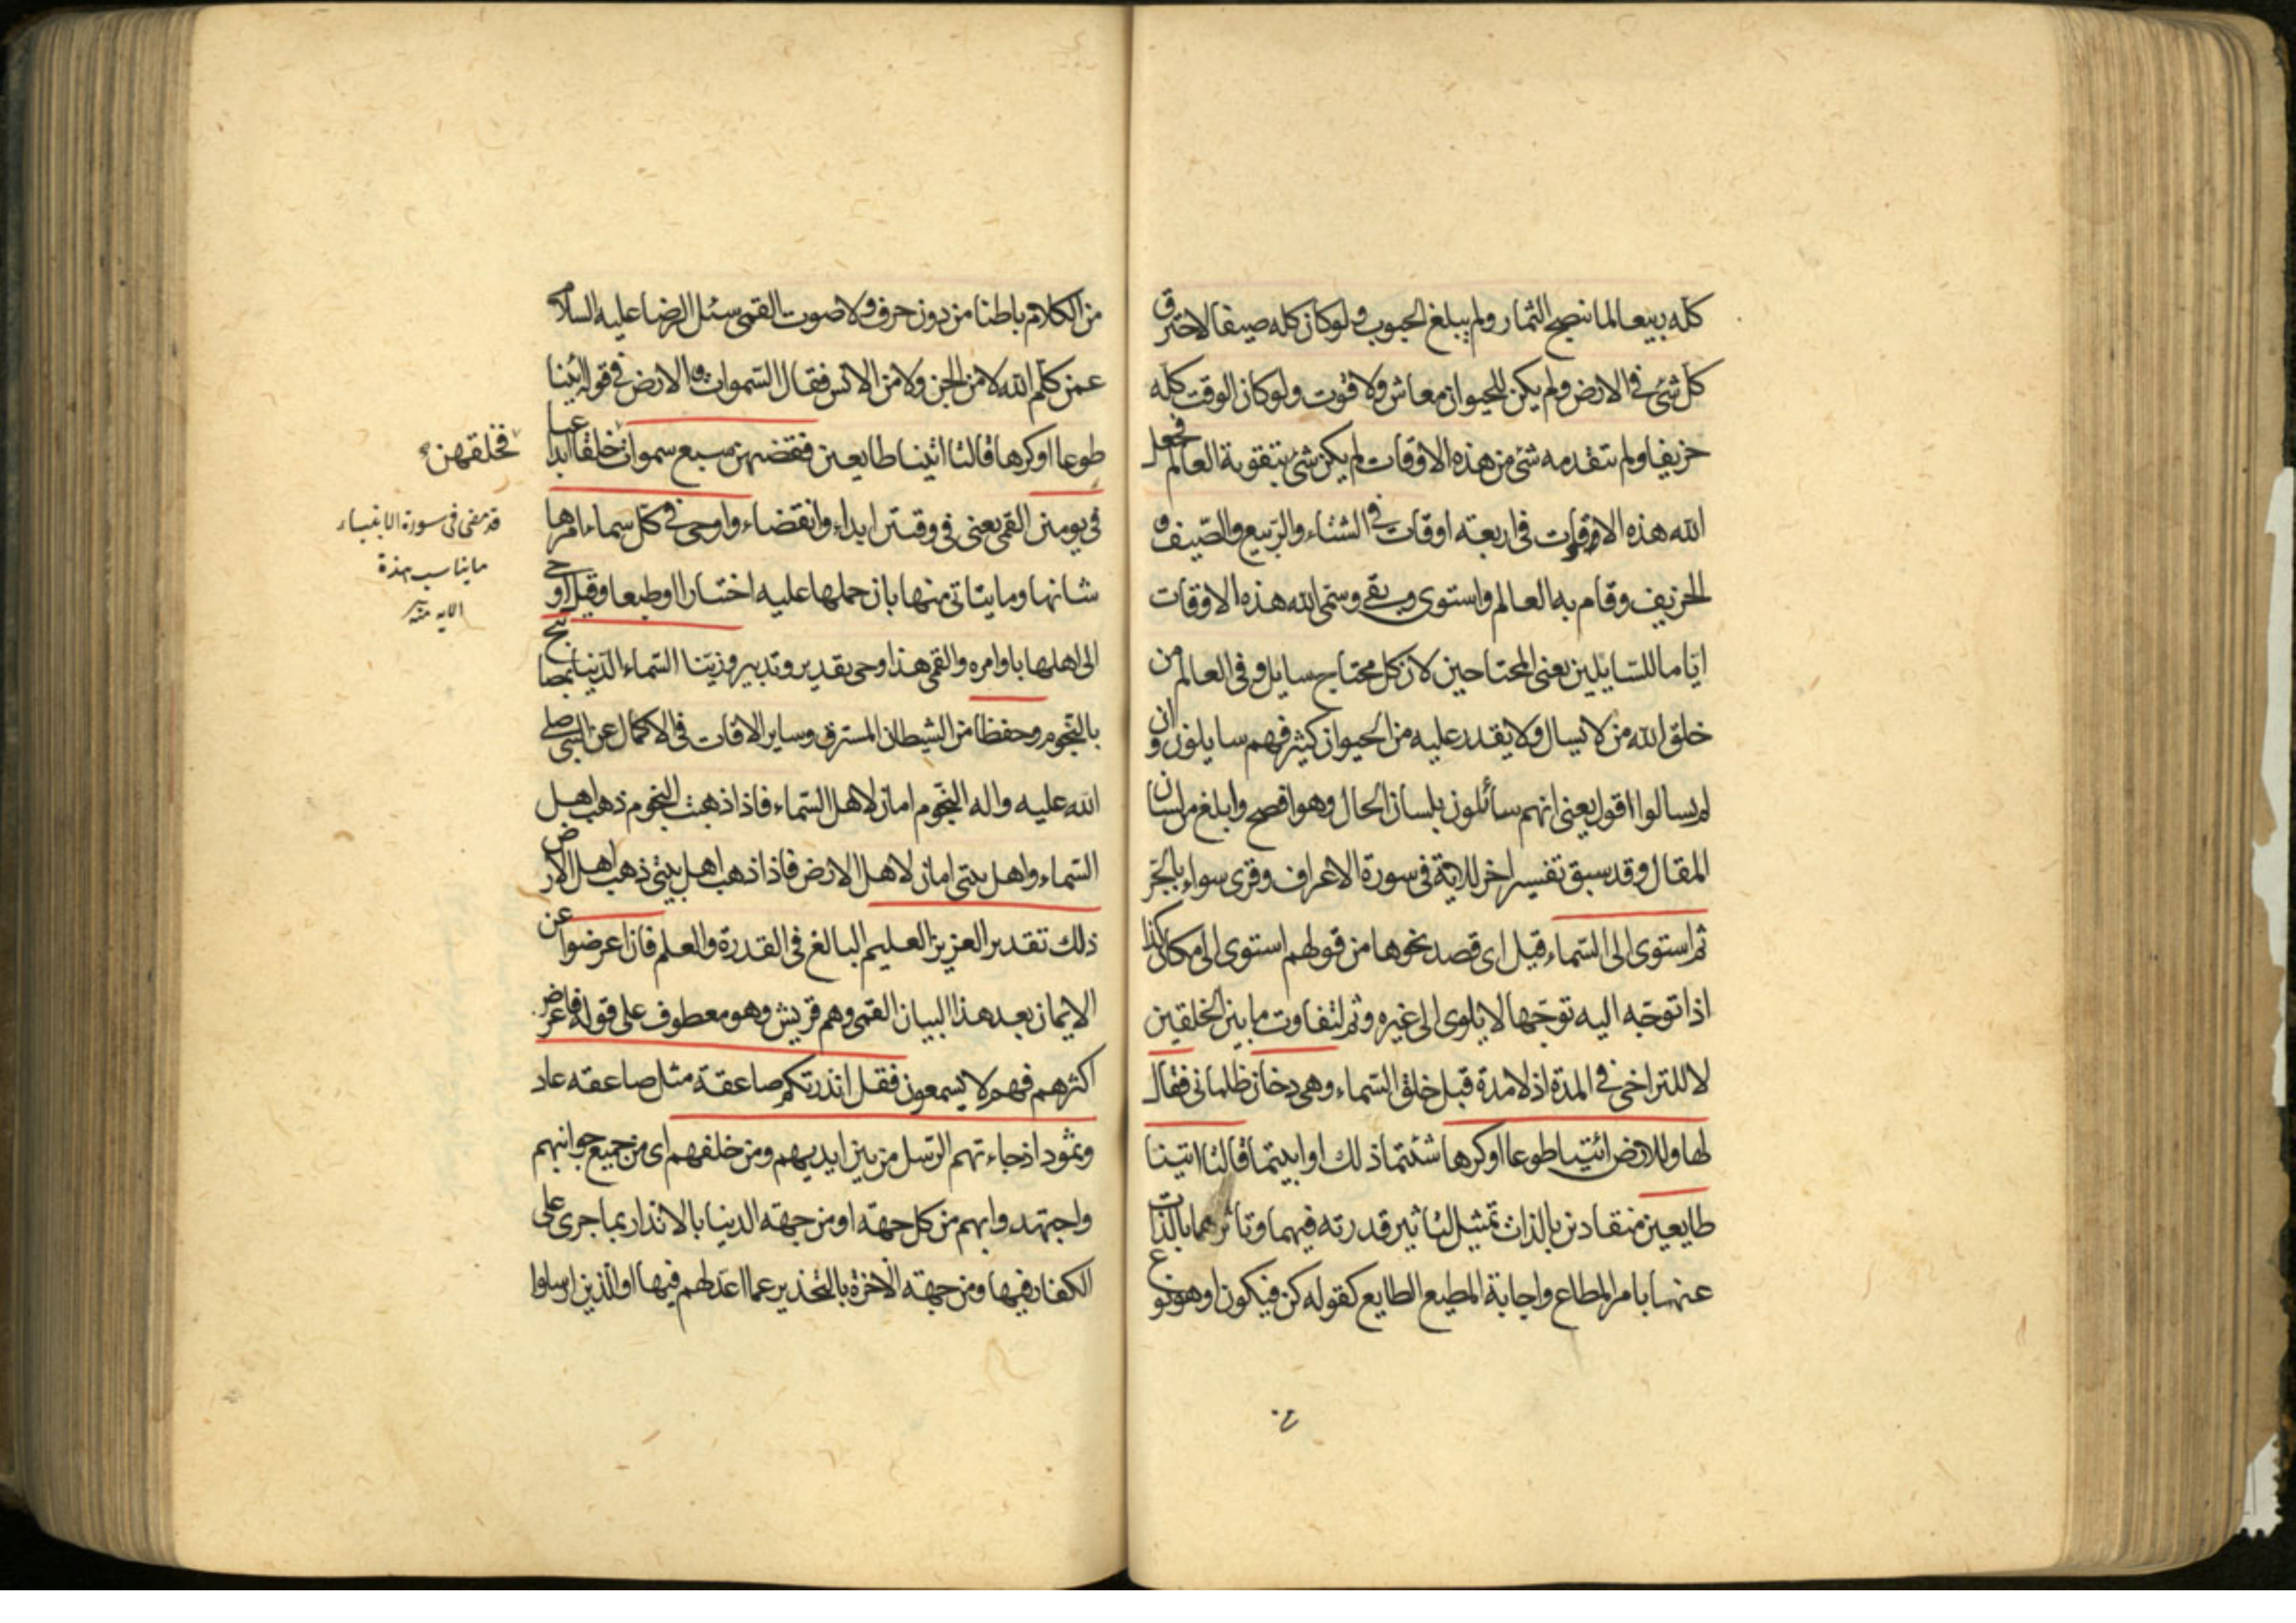 كله ربيعا لما نضج الثمار ولم يبلغ الحبوب ولو كان كله صيفا لاحترق
كل شئ في الارض ولم يكن للحيوان معاش ولا قوت ولو كان الوقت كله
خريفا ولم تتقدمه شئ من هذه الاوقات لم يكن شئ يتقوت به العالم فجعل
الله هذه الاوقات في اربعة اوقات في الشتاء والربيع والصيف و
الخريف وقام به العالم واستوى وبقى وسمى الله هذه الاوقات
اياما للسايلين يعنى المحتاجين لان كل محتاج سايل وفى العالم من
خلق الله من لا يسال ولا يقدر عليه من الحيوان كثير فهم سايلون وان
لم يسالوا اقول يعنى انهم سائلون بلسان الحال وهو افصح وابلغ من لسان
المقال وقد سبق تفسير اخر للاية فى سورة الاعراف وقرى سواء بالجر
ثم استوى الى السماء قيل اى قصد نحوها من قولهم استوى الى مكان كذا
اذا توجه اليه توجها لا يلوى الى غيره وثم لتفاوت ما بين الخلقين
لا للتراخى فى المدة اذ لا مدة قبل خلق السماء وهى دخان ظلمانى فقال
لها وللارض ائتيا طوعا او كرها شئتما ذلك او ابيتما قالتا اتينا
طايعين منقادين بالذات تمثيل لتاثير قدرته فيهما وتاثرهما بالذات
عنهما بامر المطاع واجابة المطيع الطايع كقوله كن فيكون او هو نوع
من الكلام باطنا من دون حرف ولا صوت القمى سئل الرضا عليه السلام
عمن كلم الله لا من الجن ولا من الانس فقال السموات والارض فى قوله ائتيا
طوعا او كرها قالتا اتينا طايعين فقضيهن سبع سموات خلقا ابداعيا
فى يومين القمى يعنى فى وقتين ابداء وانقضاء واوحى فى كل سماء امرها
شانها وما يتاتى منها بان حملها عليه اختيارا او طبعا وقيل اوحى
الى اهلها باوامره والقمى هذا وحى تقدير وتدبير وزينا السماء الدنيا بمصابيح
بالنجوم وحفظا من الشيطان المسترق وساير الافات فى الاكمال عن النبى صلى
الله عليه واله النجوم امان لاهل السماء فاذا ذهبت النجوم ذهب اهل
السماء واهل بيتى امان لاهل الارض فاذا ذهب اهل بيتى ذهب اهل الارض
ذلك تقدير العزيز العليم البالغ فى القدرة والعلم فان اعرضوا عن
الايمان بعد هذا البيان القمى وهم قريش وهو معطوف على قوله فاعرض
اكثرهم فهم لا يسمعون فقل انذرتكم صاعقة مثل صاعقة عاد
وثمود اذ جاءتهم الرسل من بين ايديهم ومن خلفهم اى من جميع جوانبهم
واجتهدوا بهم من كل جهة او من جهة الدنيا بالانذار بما جرى على
الكفار فيها ومن جهة الاخرة بالتحذير عما اعد لهم فيها او الذين ارسلوا
فخلقهن
قد مضى فى سورة الانبياء
ما يناسب هذة
الاية منه